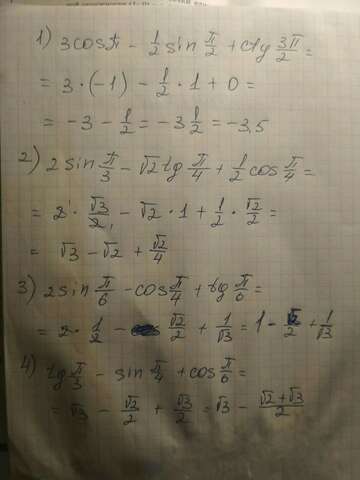 1) 3cosπ - 1/2 sin π/2 + ctg 3π/2 =
= 3 · (-1) - 1/2 · 1 + 0 =
= -3 - 1/2 = -3 1/2 = -3,5
2) 2 sin π/3 - √2 tg π/4 + 1/2 cos π/4 =
= 2 · √3/2 - √2 · 1 + 1/2 · √2/2 =
= √3 - √2 + √2/4
3) 2 sin π/6 - cos π/4 + tg π/6 =
= 2 · 1/2 - √2/2 + 1/√3 = 1 - √2/2 + 1/√3
4) tg π/3 - sin π/4 + cos π/6 =
= √3 - √2/2 + √3/2 = √3 - √2+√3/2